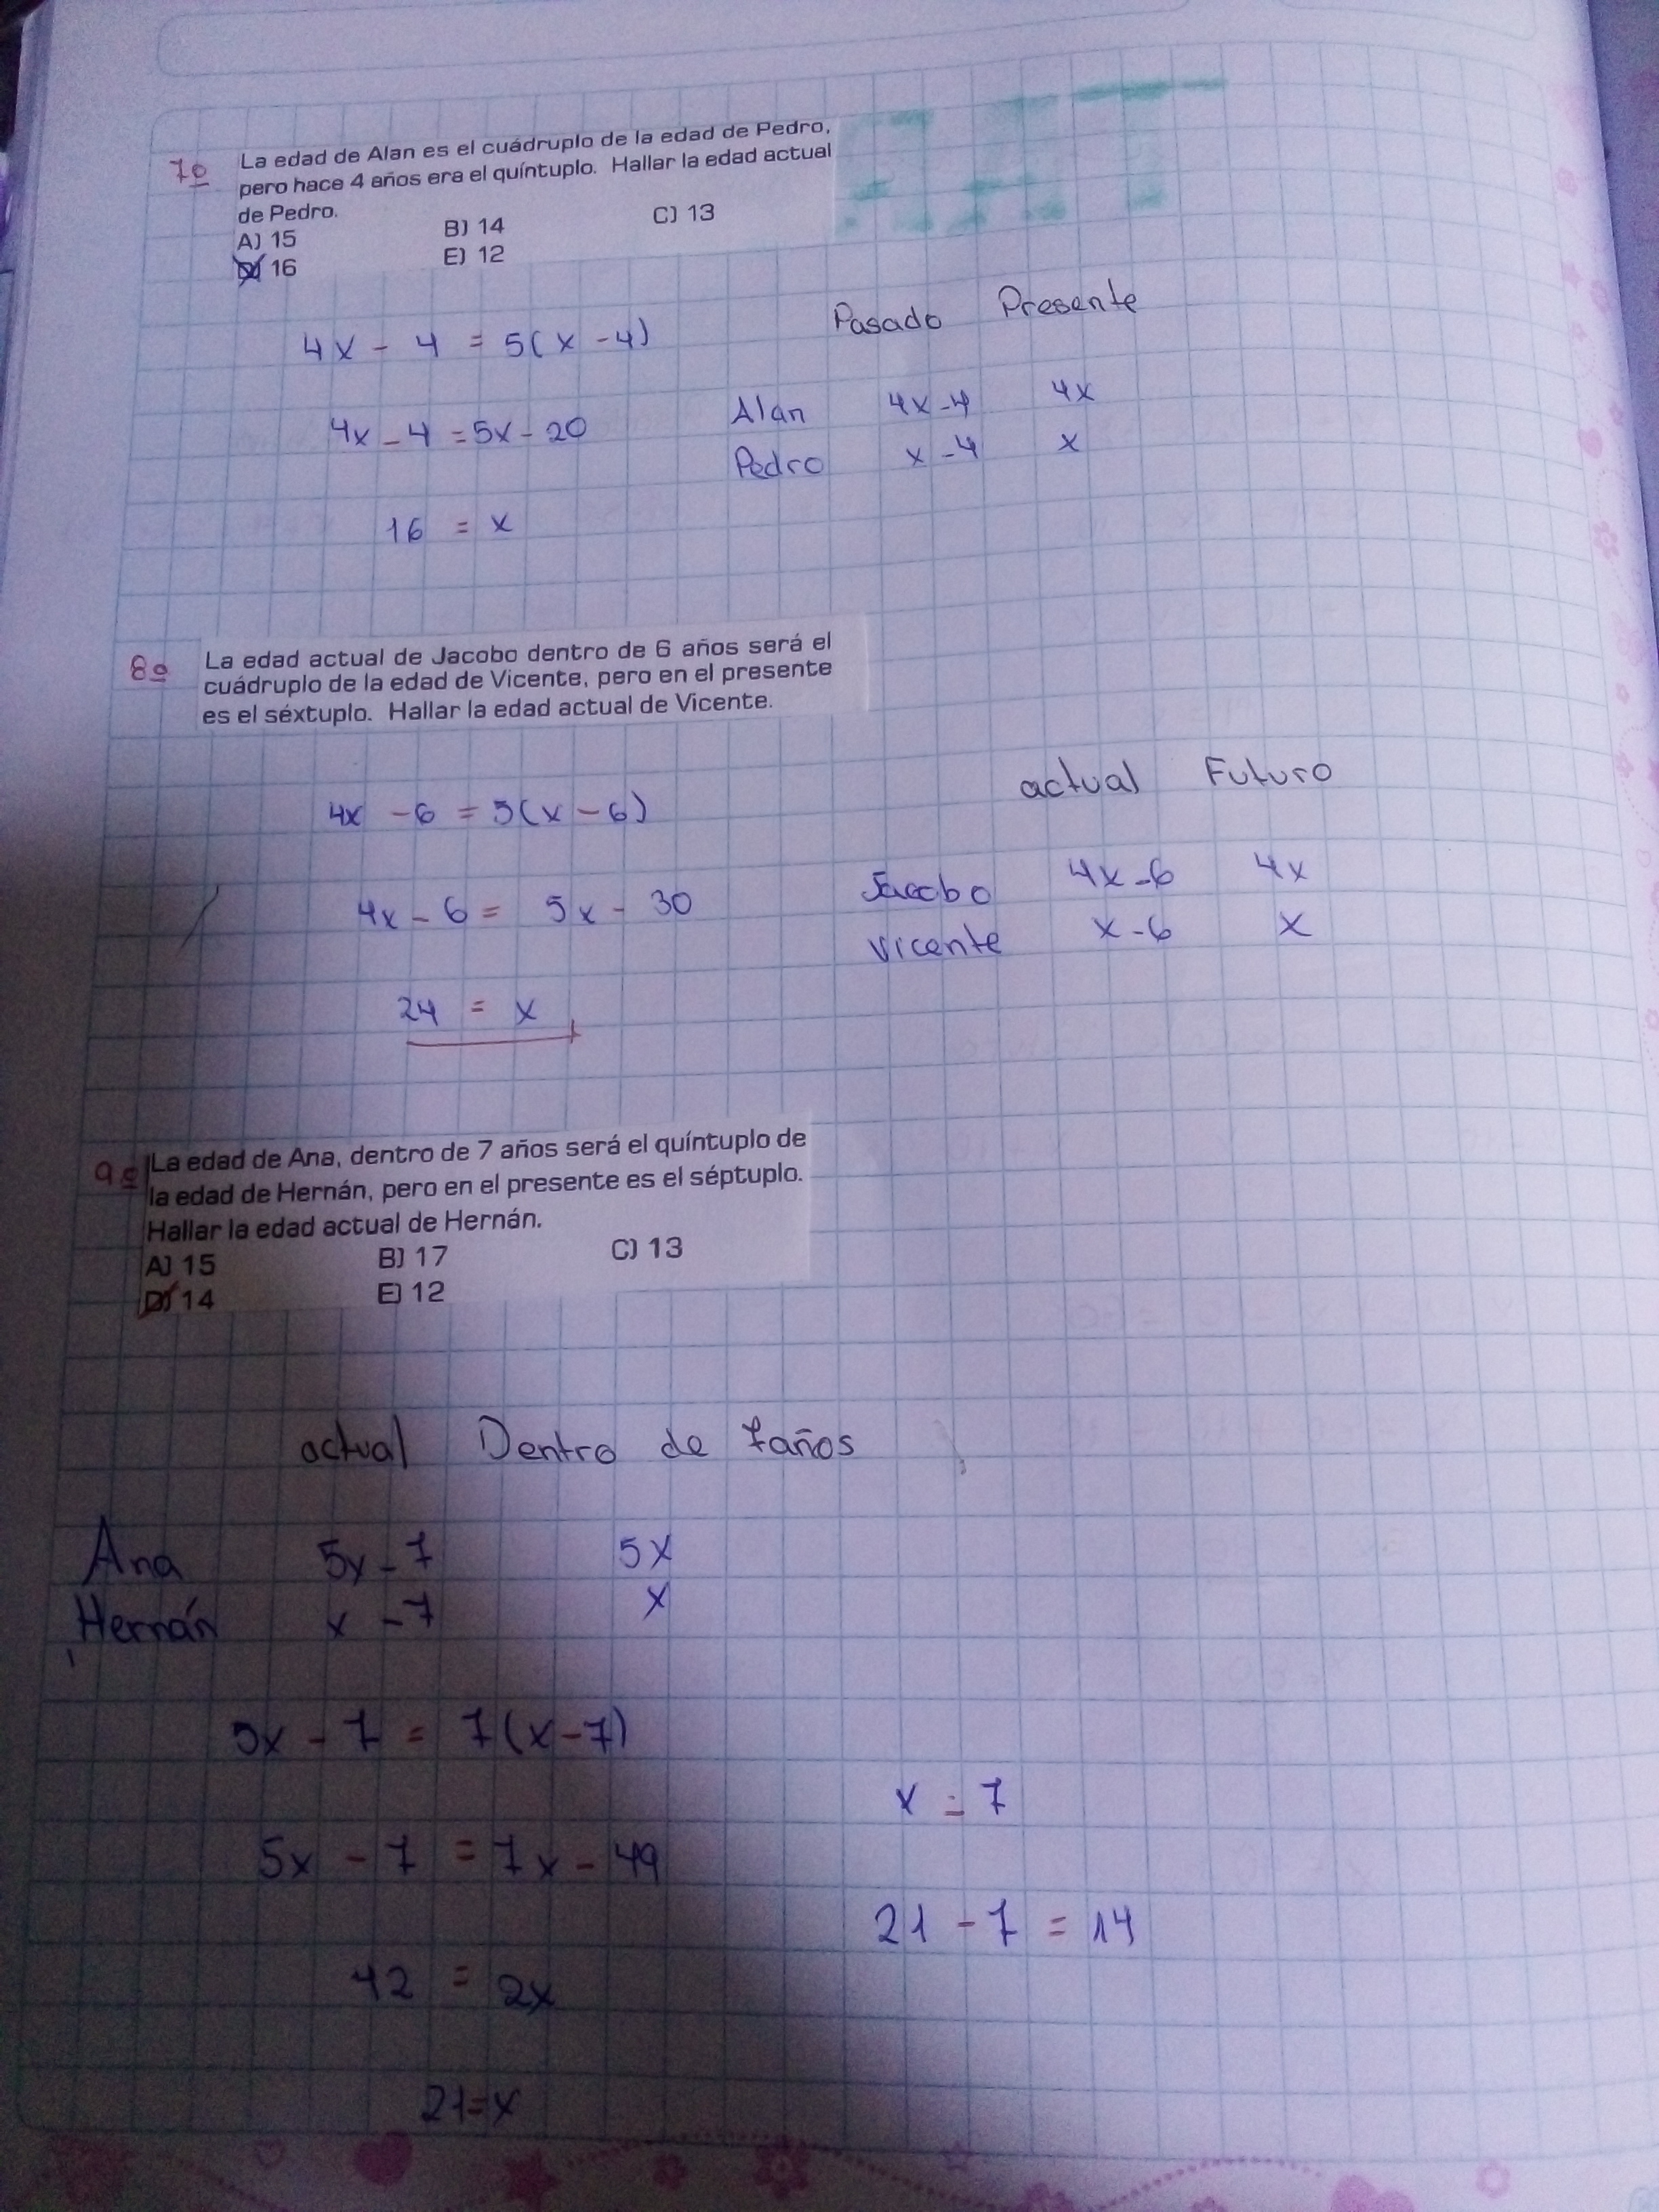 7º La edad de Alan es el cuádruplo de la edad de Pedro,
pero hace 4 años era el quíntuplo. Hallar la edad actual
de Pedro.
A) 15 B) 14 C) 13
D) 16 E) 12
Pasado Presente
4x - 4 = 5(x - 4)
Alan 4x - 4 4x
4x - 4 = 5x - 20
Pedro x - 4 x
16 = x
8º La edad actual de Jacobo dentro de 6 años será el
cuádruplo de la edad de Vicente, pero en el presente
es el séxtuplo. Hallar la edad actual de Vicente.
actual Futuro
4x - 6 = 5(x - 6)
Jacobo 4x - 6 4x
4x - 6 = 5x - 30
Vicente x - 6 x
24 = x
9º La edad de Ana, dentro de 7 años será el quíntuplo de
la edad de Hernán, pero en el presente es el séptuplo.
Hallar la edad actual de Hernán.
A) 15 B) 17 C) 13
D) 14 E) 12
actual Dentro de 7años
Ana 5x - 7 5x
Hernán x - 7 x
5x - 7 = 7(x - 7)
x - 7
5x - 7 = 7x - 49
21 - 7 = 14
42 = 2x
21 = x